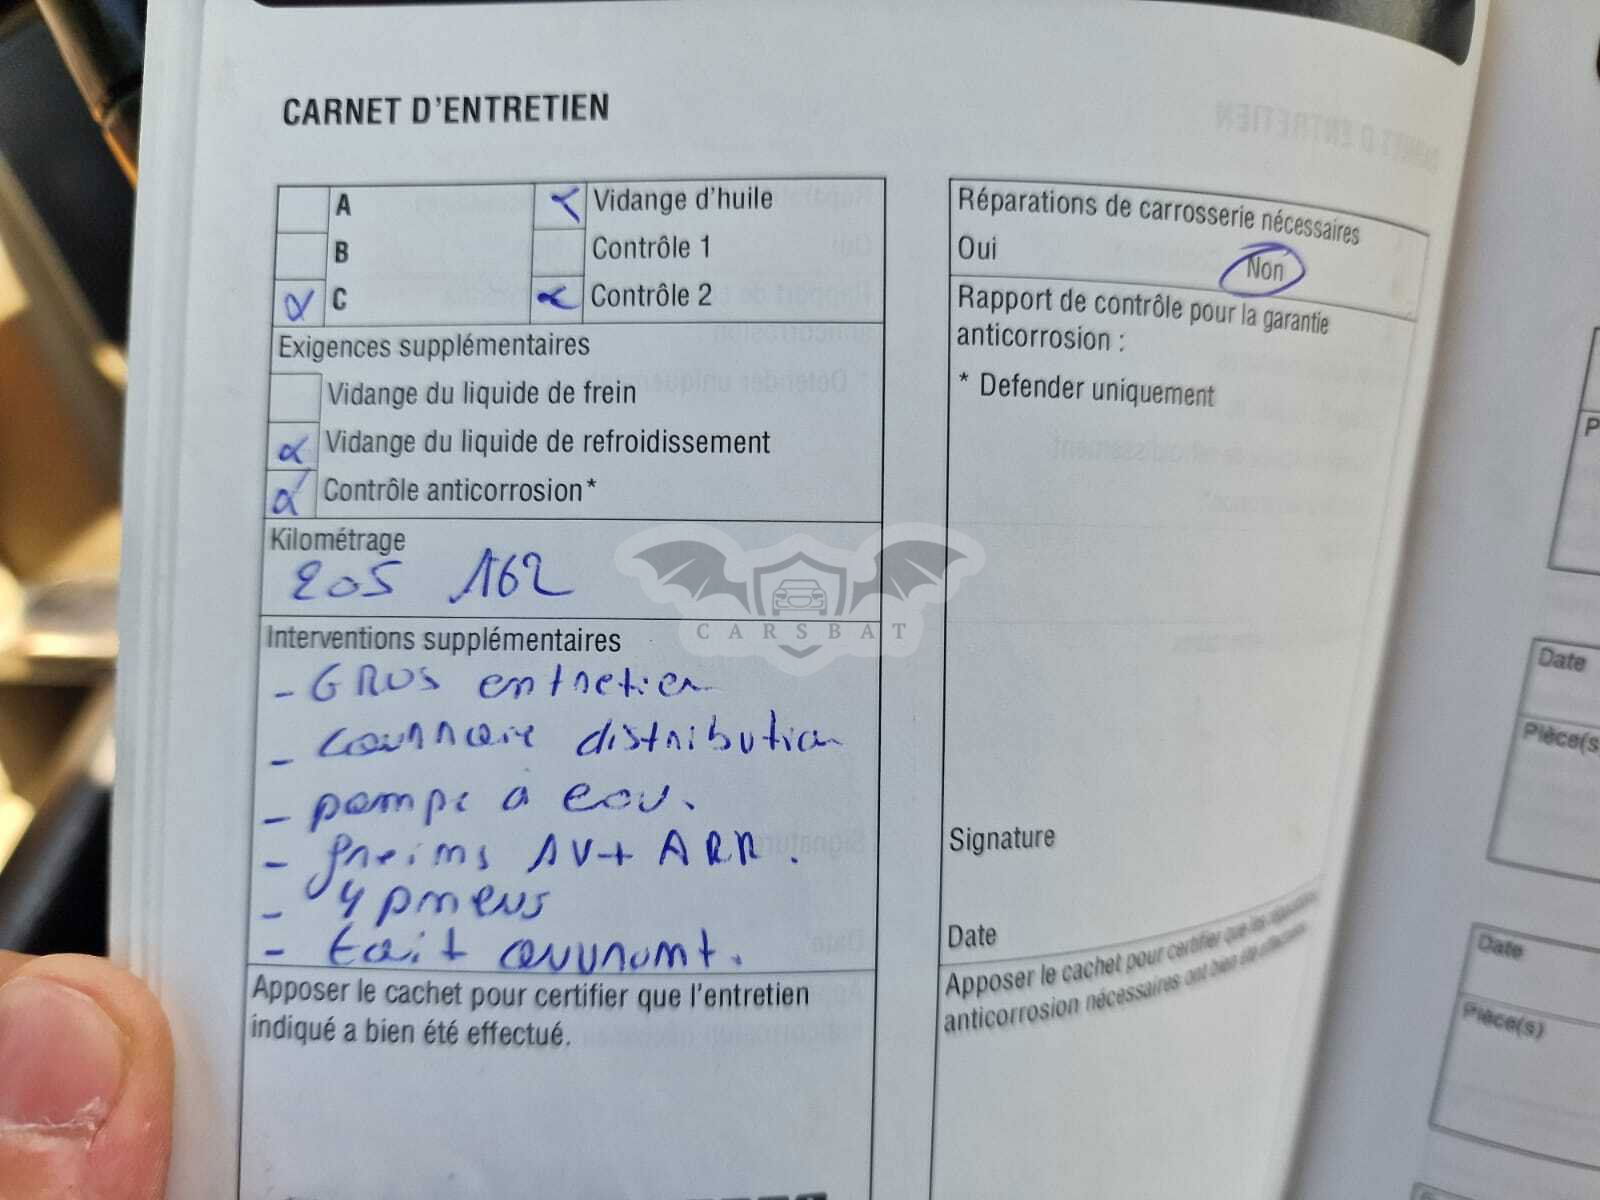 CARNET D'ENTRETIEN
A
Vidange d'huile
B
Contrôle 1
C
Contrôle 2
Exigences supplémentaires
Vidange du liquide de frein
Vidange du liquide de refroidissement
Contrôle anticorrosion*
Kilométrage
205 162
Interventions supplémentaires
- GROS entretien
- courroie distribution
- pompe a eau.
- freins AV+ ARR.
- 4 pneus
- toit ouvrant.
Apposer le cachet pour certifier que l'entretien
indiqué a bien été effectué.
Réparations de carrosserie nécessaires
Oui
Non
Rapport de contrôle pour la garantie
anticorrosion :
* Defender uniquement
Signature
Date
Apposer le cachet pour certifier que les réparations
anticorrosion nécessaires ont bien été effectuées.
CARSBAT
Date
Pièce(s
Date
Pièce(s)